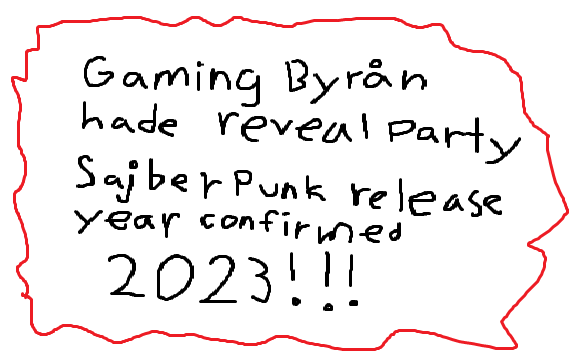 Gaming Byrån
hade reveal Party
SajberPunk release
year confirmed
2023!!!